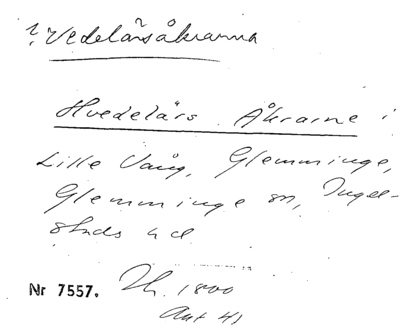 ? Vedelårsåkrarna
Hvedelårs Åkrarne i
Lille Vång, Glemminge,
Glemminge sn, Ingel-
stads hd
Nr 7557. Sk. 1800
Akt 41